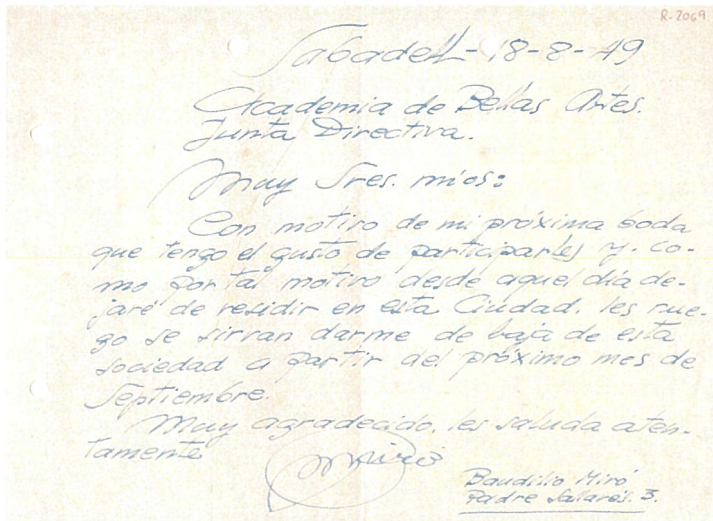 R-2069
Sabadell-18-8-49
Academia de Bellas Artes.
Junta Directiva.
Muy Sres. mios:
Con motivo de mi próxima boda
que tengo el gusto de participarles y. co-
mo por tal motivo desde aquel día de-
jaré de residir en esta Ciudad. les rue-
go se sirvan darme de baja de esta
sociedad a partir del próximo mes de
Septiembre.
Muy agradecido, les saluda aten-
tamente
Miró
Baudilio Miró
Padre Sallarés. 3.